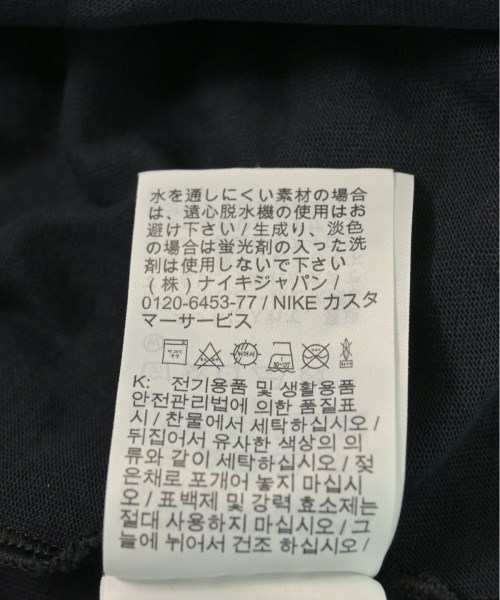 水を通しにくい素材の場合
は、遠心脱水機の使用はお
避け下さい / 生成り、淡色
の場合は蛍光剤の入った洗
剤は使用しないで下さい
(株)ナイキジャパン /
0120-6453-77 / NIKE カスタ
マーサービス
K: 전기용품 및 생활용품
안전관리법에 의한 품질표
시 / 찬물에서 세탁하십시오 /
뒤집어서 유사한 색상의 의
류와 같이 세탁하십시오 / 젖
은채로 포개어 놓지 마십시
오 / 표백제 및 강력 효소제는
절대 사용하지 마십시오 / 그
늘에 뉘어서 건조 하십시오 /